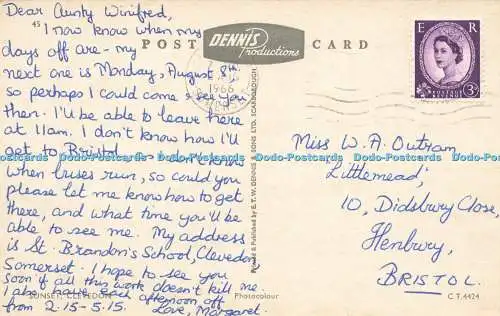 Dear Aunty Winifred,
I now know when my
days off are - my
next one is Monday, August 8th
so perhaps I could come & see you
then. I'll be able to leave there
at 11am. I don't know how I'll
get to Bristol
when buses run, so could you
please let me know how to get
there, and what time you'll be
able to see me. My address
is St. Brandon's School, Clevedon
Somerset. I hope to see you
soon if all this work doesn't kill me.
I also have each afternoon off
from 2.15-5.15. Love, Margaret.
45
POST CARD
DENNIS
Productions
1966
E R
POSTAGE REVENUE
3D
Miss W. A. Outram,
"Littlemead,"
10, Didsbury Close,
Henbury,
BRISTOL.
Printed & Published by E. T. W. DENNIS & SONS LTD., SCARBOROUGH
SUNSET, CLEVEDON
Photocolour
C.T.4424
Dodo-Postcards Dodo-Postcards Dodo-Postcards Dodo-Postcards Dodo-Postcards